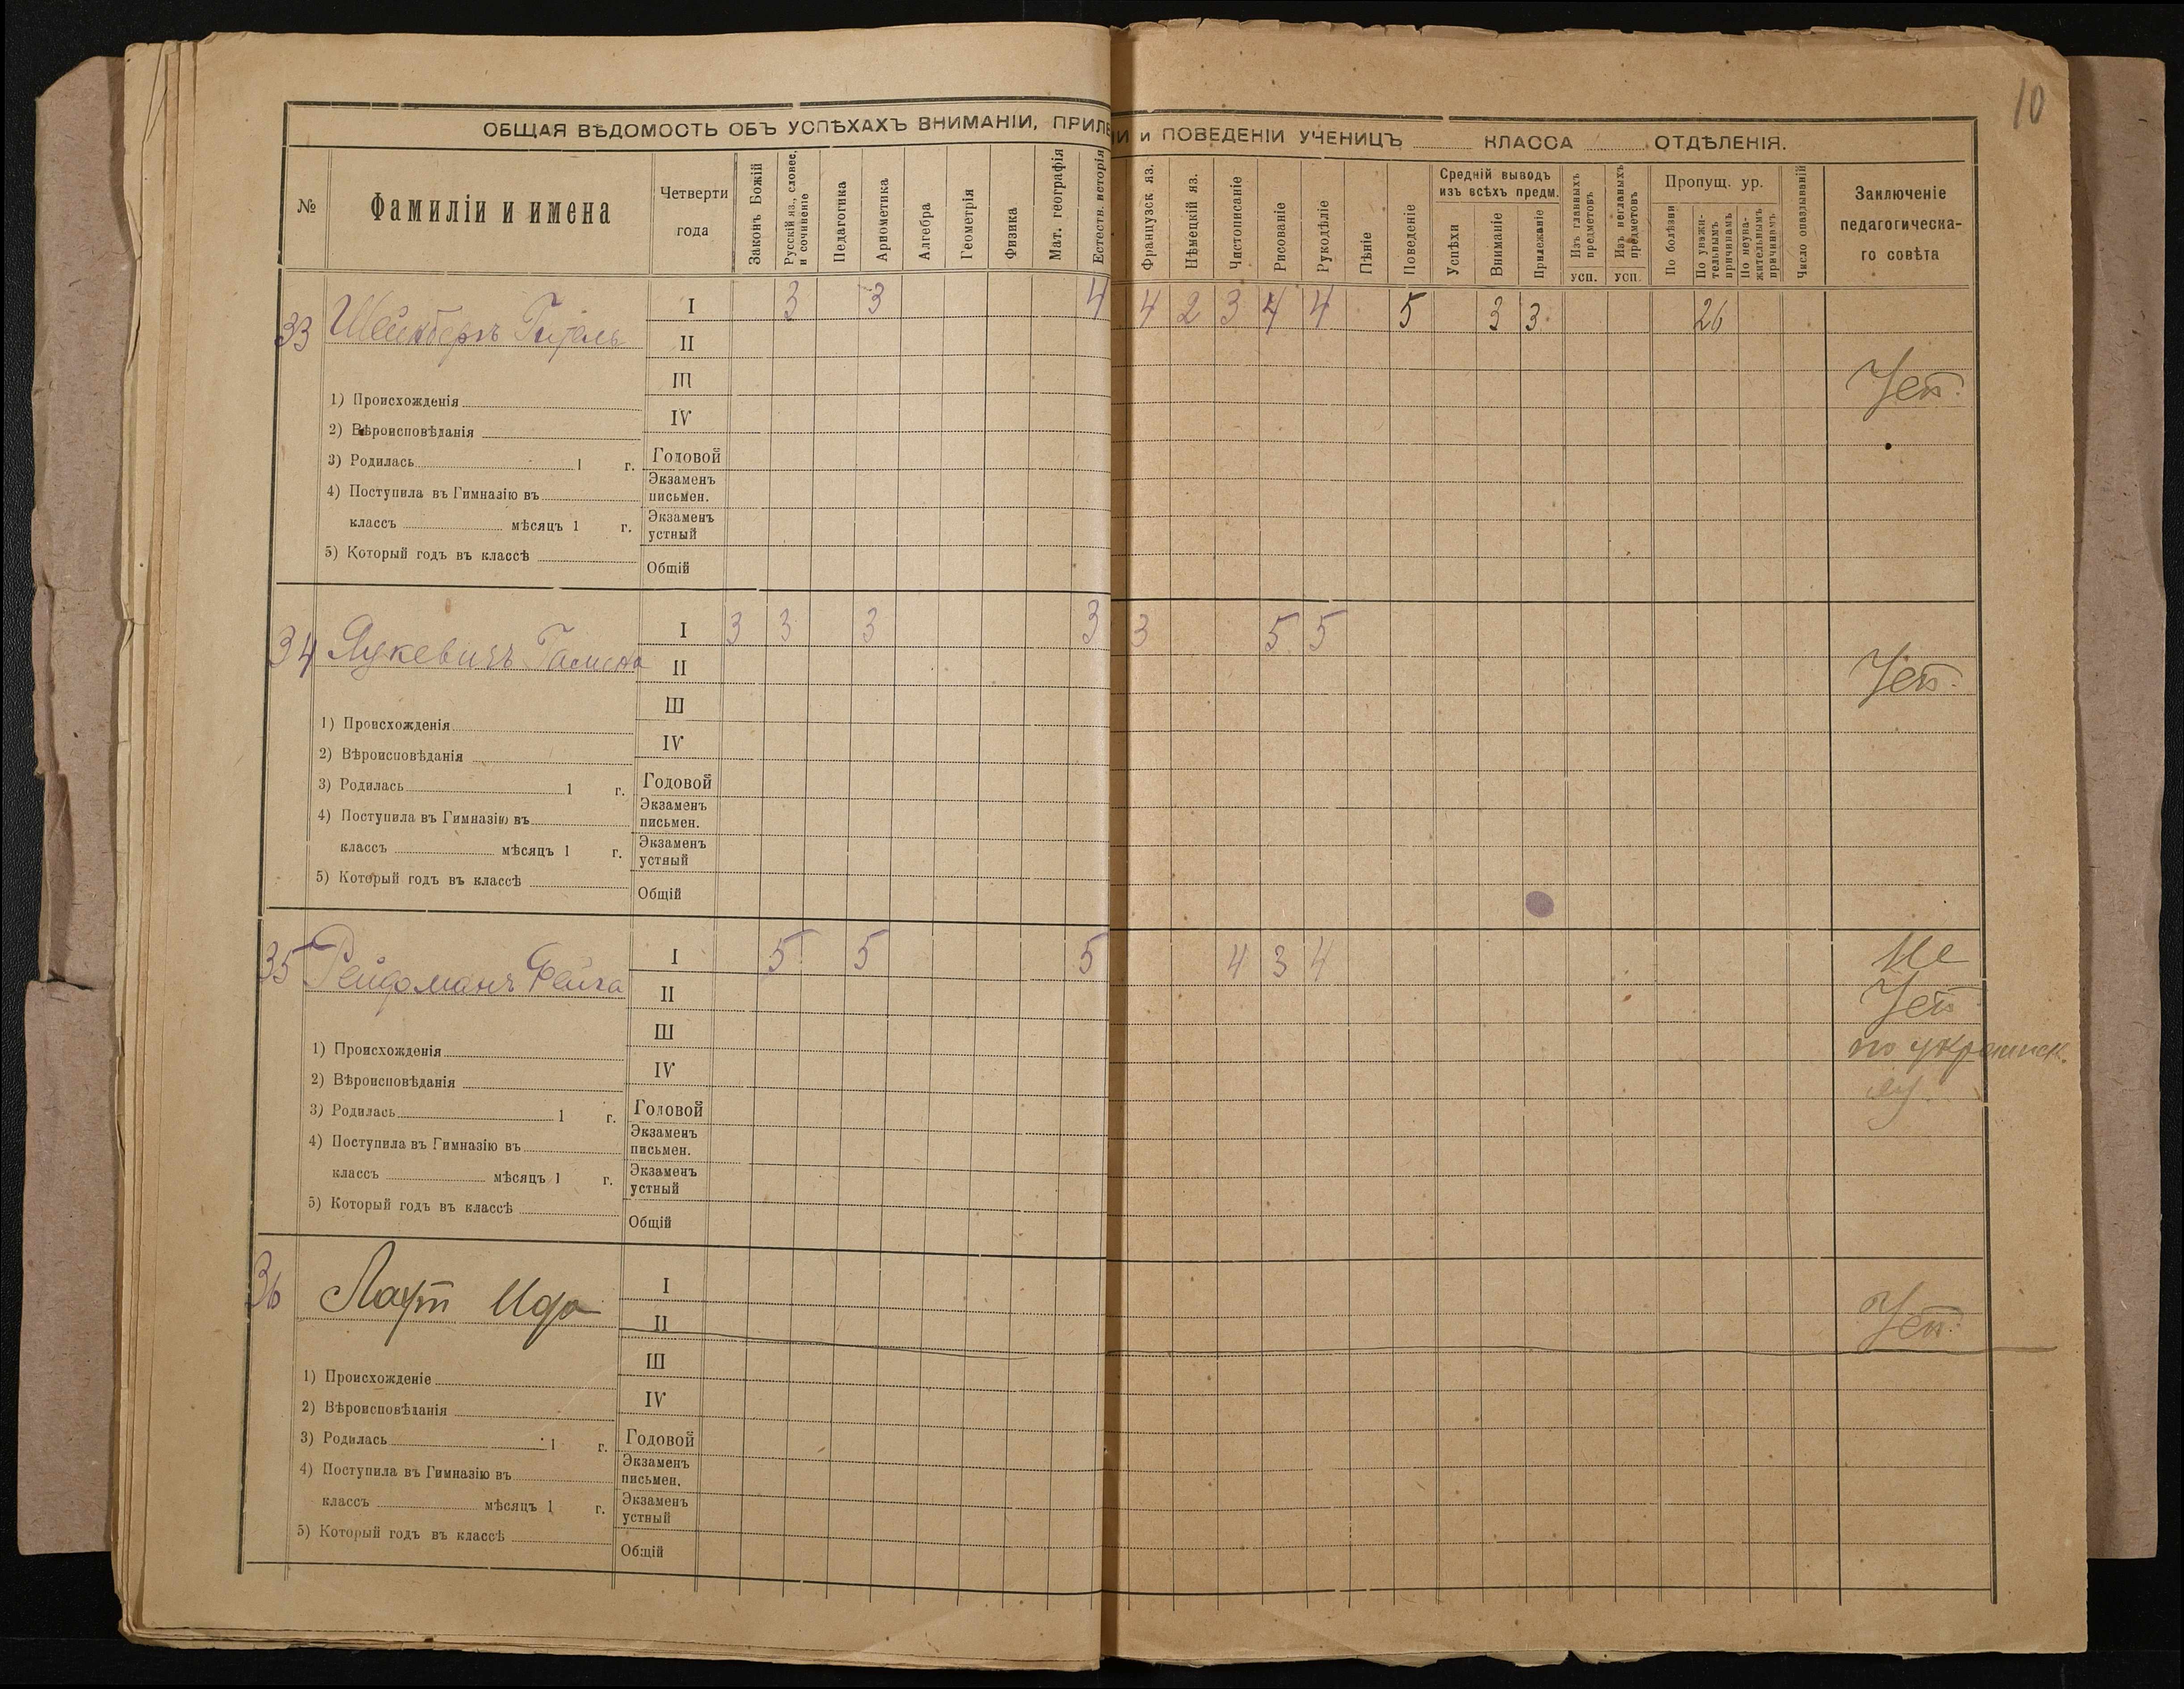 10
ОБЩАЯ ВѢДОМОСТЬ ОБЪ УСПѢХАХЪ ВНИМАНІИ, ПРИЛЕ ІИ и ПОВЕДЕНІИ УЧЕНИЦЪ КЛАССА ОТДѢЛЕНІЯ.
№ Фамиліи и имена Четверти года Законъ Божій Русскій яз., словес. и сочиненіе Педагогика Ариѳметика Алгебра Геометрія Физика Мат. географія Естеств. исторія Французск яз. Нѣмецкій яз. Чистописаніе Рисованіе Рукодѣліе Пѣніе Поведеніе Средній выводъ изъ всѣхъ предм. Успѣхи Вниманіе Прилежаніе Изъ главныхъ предметовъ усп. Изъ неглавныхъ предметовъ усп. Пропущ. ур. По болѣзни По уважительнымъ причинамъ По неуважительнымъ причинамъ Число опаздываній Заключеніе педагогическаго совѣта
33 I 3 3 4 4 2 3 4 4 5 3 3 26
II
III
1) Происхожденія
IV
2) Вѣроисповѣданія
3) Родилась 1 г. Годовой
4) Поступила въ Гимназію въ Экзаменъ письмен.
классъ мѣсяцъ 1 г. Экзаменъ устный
5) Который годъ въ классѣ Общій
34 Яцкевичъ I 3 3 3 3 3 5 5
II
III
1) Происхожденія
IV
2) Вѣроисповѣданія
3) Родилась 1 г. Годовой
4) Поступила въ Гимназію въ Экзаменъ письмен.
классъ мѣсяцъ 1 г. Экзаменъ устный
5) Который годъ въ классѣ Общій
35 Фейга I 5 5 5 4 3 4 Не
II
III по украинск.
1) Происхожденія
IV яз.
2) Вѣроисповѣданія
3) Родилась 1 г. Годовой
4) Поступила въ Гимназію въ Экзаменъ письмен.
классъ мѣсяцъ 1 г. Экзаменъ устный
5) Который годъ въ классѣ Общій
36 Ида I
II
III
1) Происхожденіе
IV
2) Вѣроисповѣданія
3) Родилась 1 г. Годовой
4) Поступила въ Гимназію въ Экзаменъ письмен.
классъ мѣсяцъ 1 г. Экзаменъ устный
5) Который годъ въ классѣ Общій